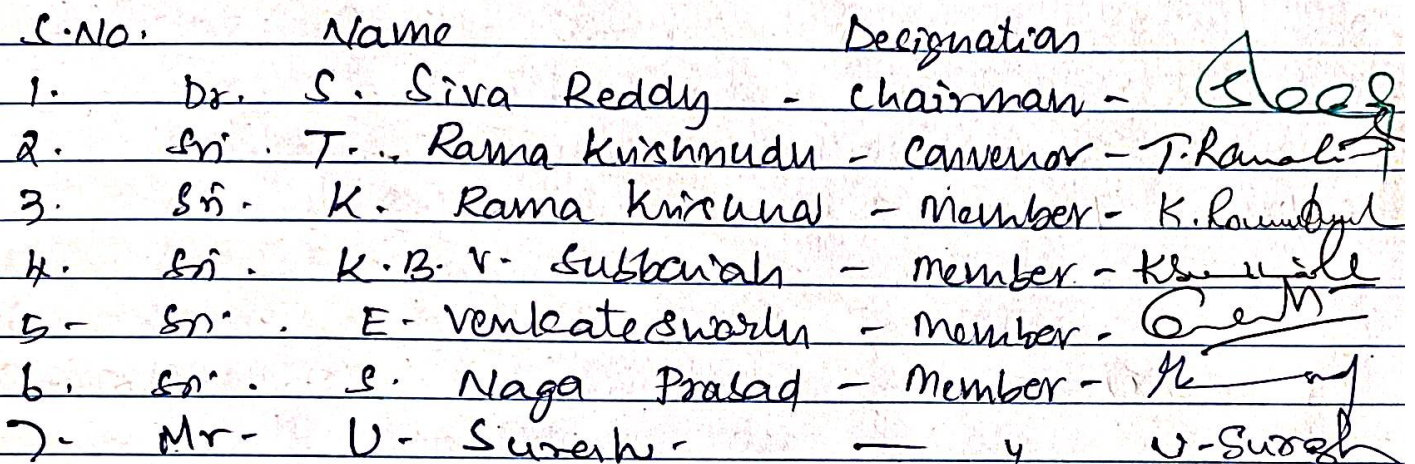 S.No. Name Designation
1. Dr. S. Siva Reddy - Chairman -
2. Sri. T. Rama Krishnudu - Convenor - T.Ramakri
3. Sri. K. Rama Krishna - Member - K.
4. Sri. K.B.V. Subbaiah - member -
5- Sri. E- Venkateswarlu - Member -
6. Sri. S. Naga Prasad - Member -
7- Mr- U- Suresh - — 4 U-Suresh